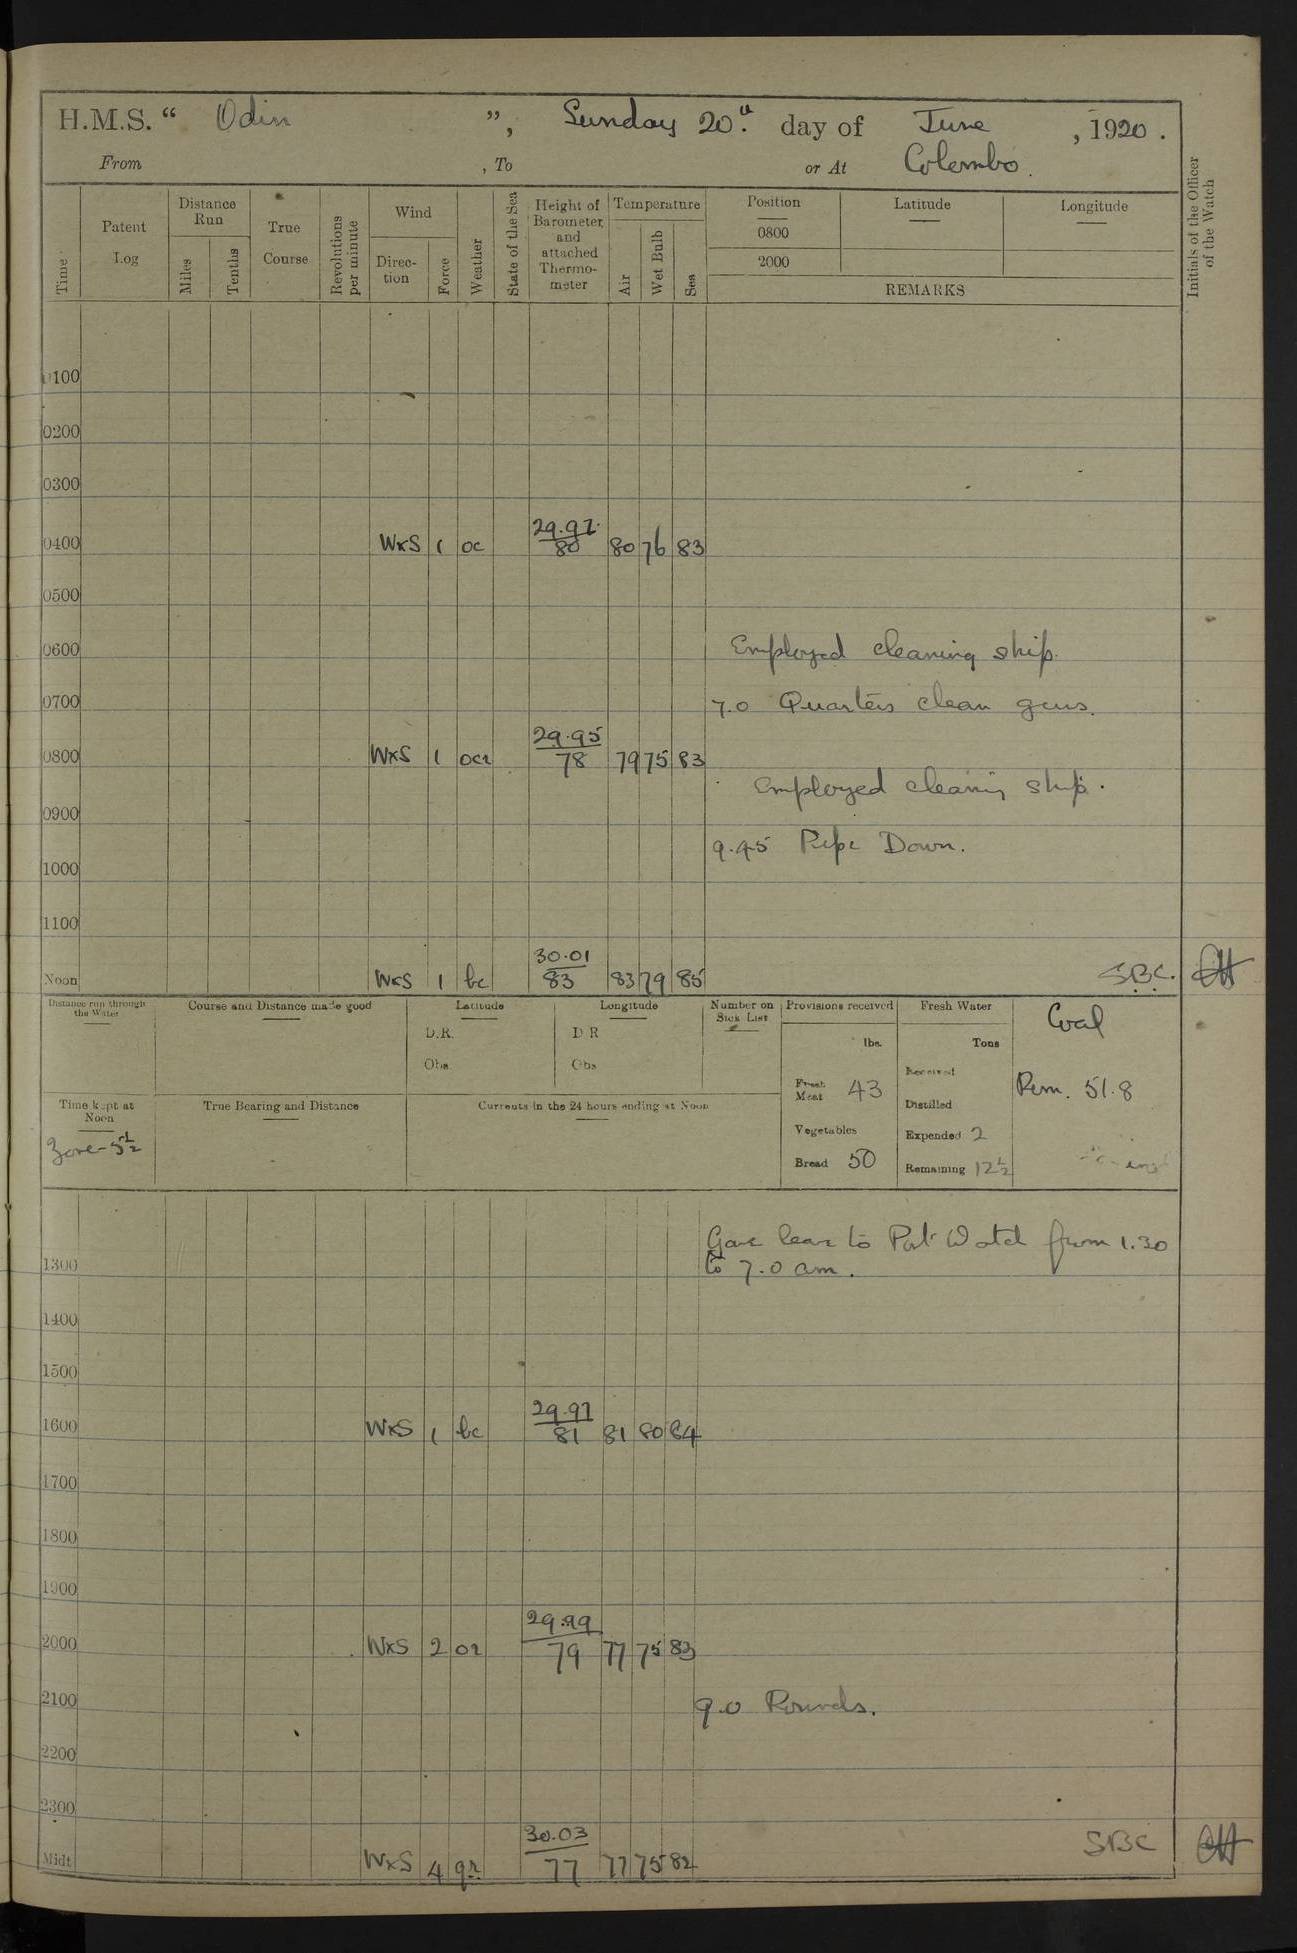 H.M.S. “ Odin ”, Sunday 20.th day of June , 1920 .
From , To or At Colombo.
Time Patent Log Distance Run Miles Tenths True Course Revolutions per minute Wind Direction Force Weather State of the Sea Height of Barometer and attached Thermometer Temperature Air Wet Bulb Sea Position 0800 2000 Latitude Longitude REMARKS Initials of the Officer of the Watch
0100
0200
0300
0400 WxS 1 oc 29.97 80 80 76 83
0500
0600 Employed cleaning ship.
0700 7.0 Quarters clean guns.
0800 WxS 1 ocr 29.95 78 79 75 83
Employed cleaning ship.
0900
9.45 Pipe Down.
1000
1100
Noon WxS 1 bc 30.01 83 83 79 85 SBC.
Distance run through the Water Course and Distance made good Latitude Longitude Number on Sick List Provisions received Fresh Water Coal
D.R. D R lbs. Tons
Obs Obs Received
Fresh Meat 43 Rem. 51.8
Distilled
Time kept at Noon True Bearing and Distance Currents in the 24 hours ending at Noon
Zone -5½ Vegetables Expended 2
Bread 50 Remaining 12½
Gave leave to Port Watch from 1.30
1300 to 7.0 am.
1400
1500
1600 WxS 1 bc 29.97 81 81 80 84
1700
1800
1900
2000 WxS 2 or 29.99 79 77 75 83
2100 9.0 Rounds.
2200
2300
Midt WxS 4 qr 30.03 77 77 75 82 SBC